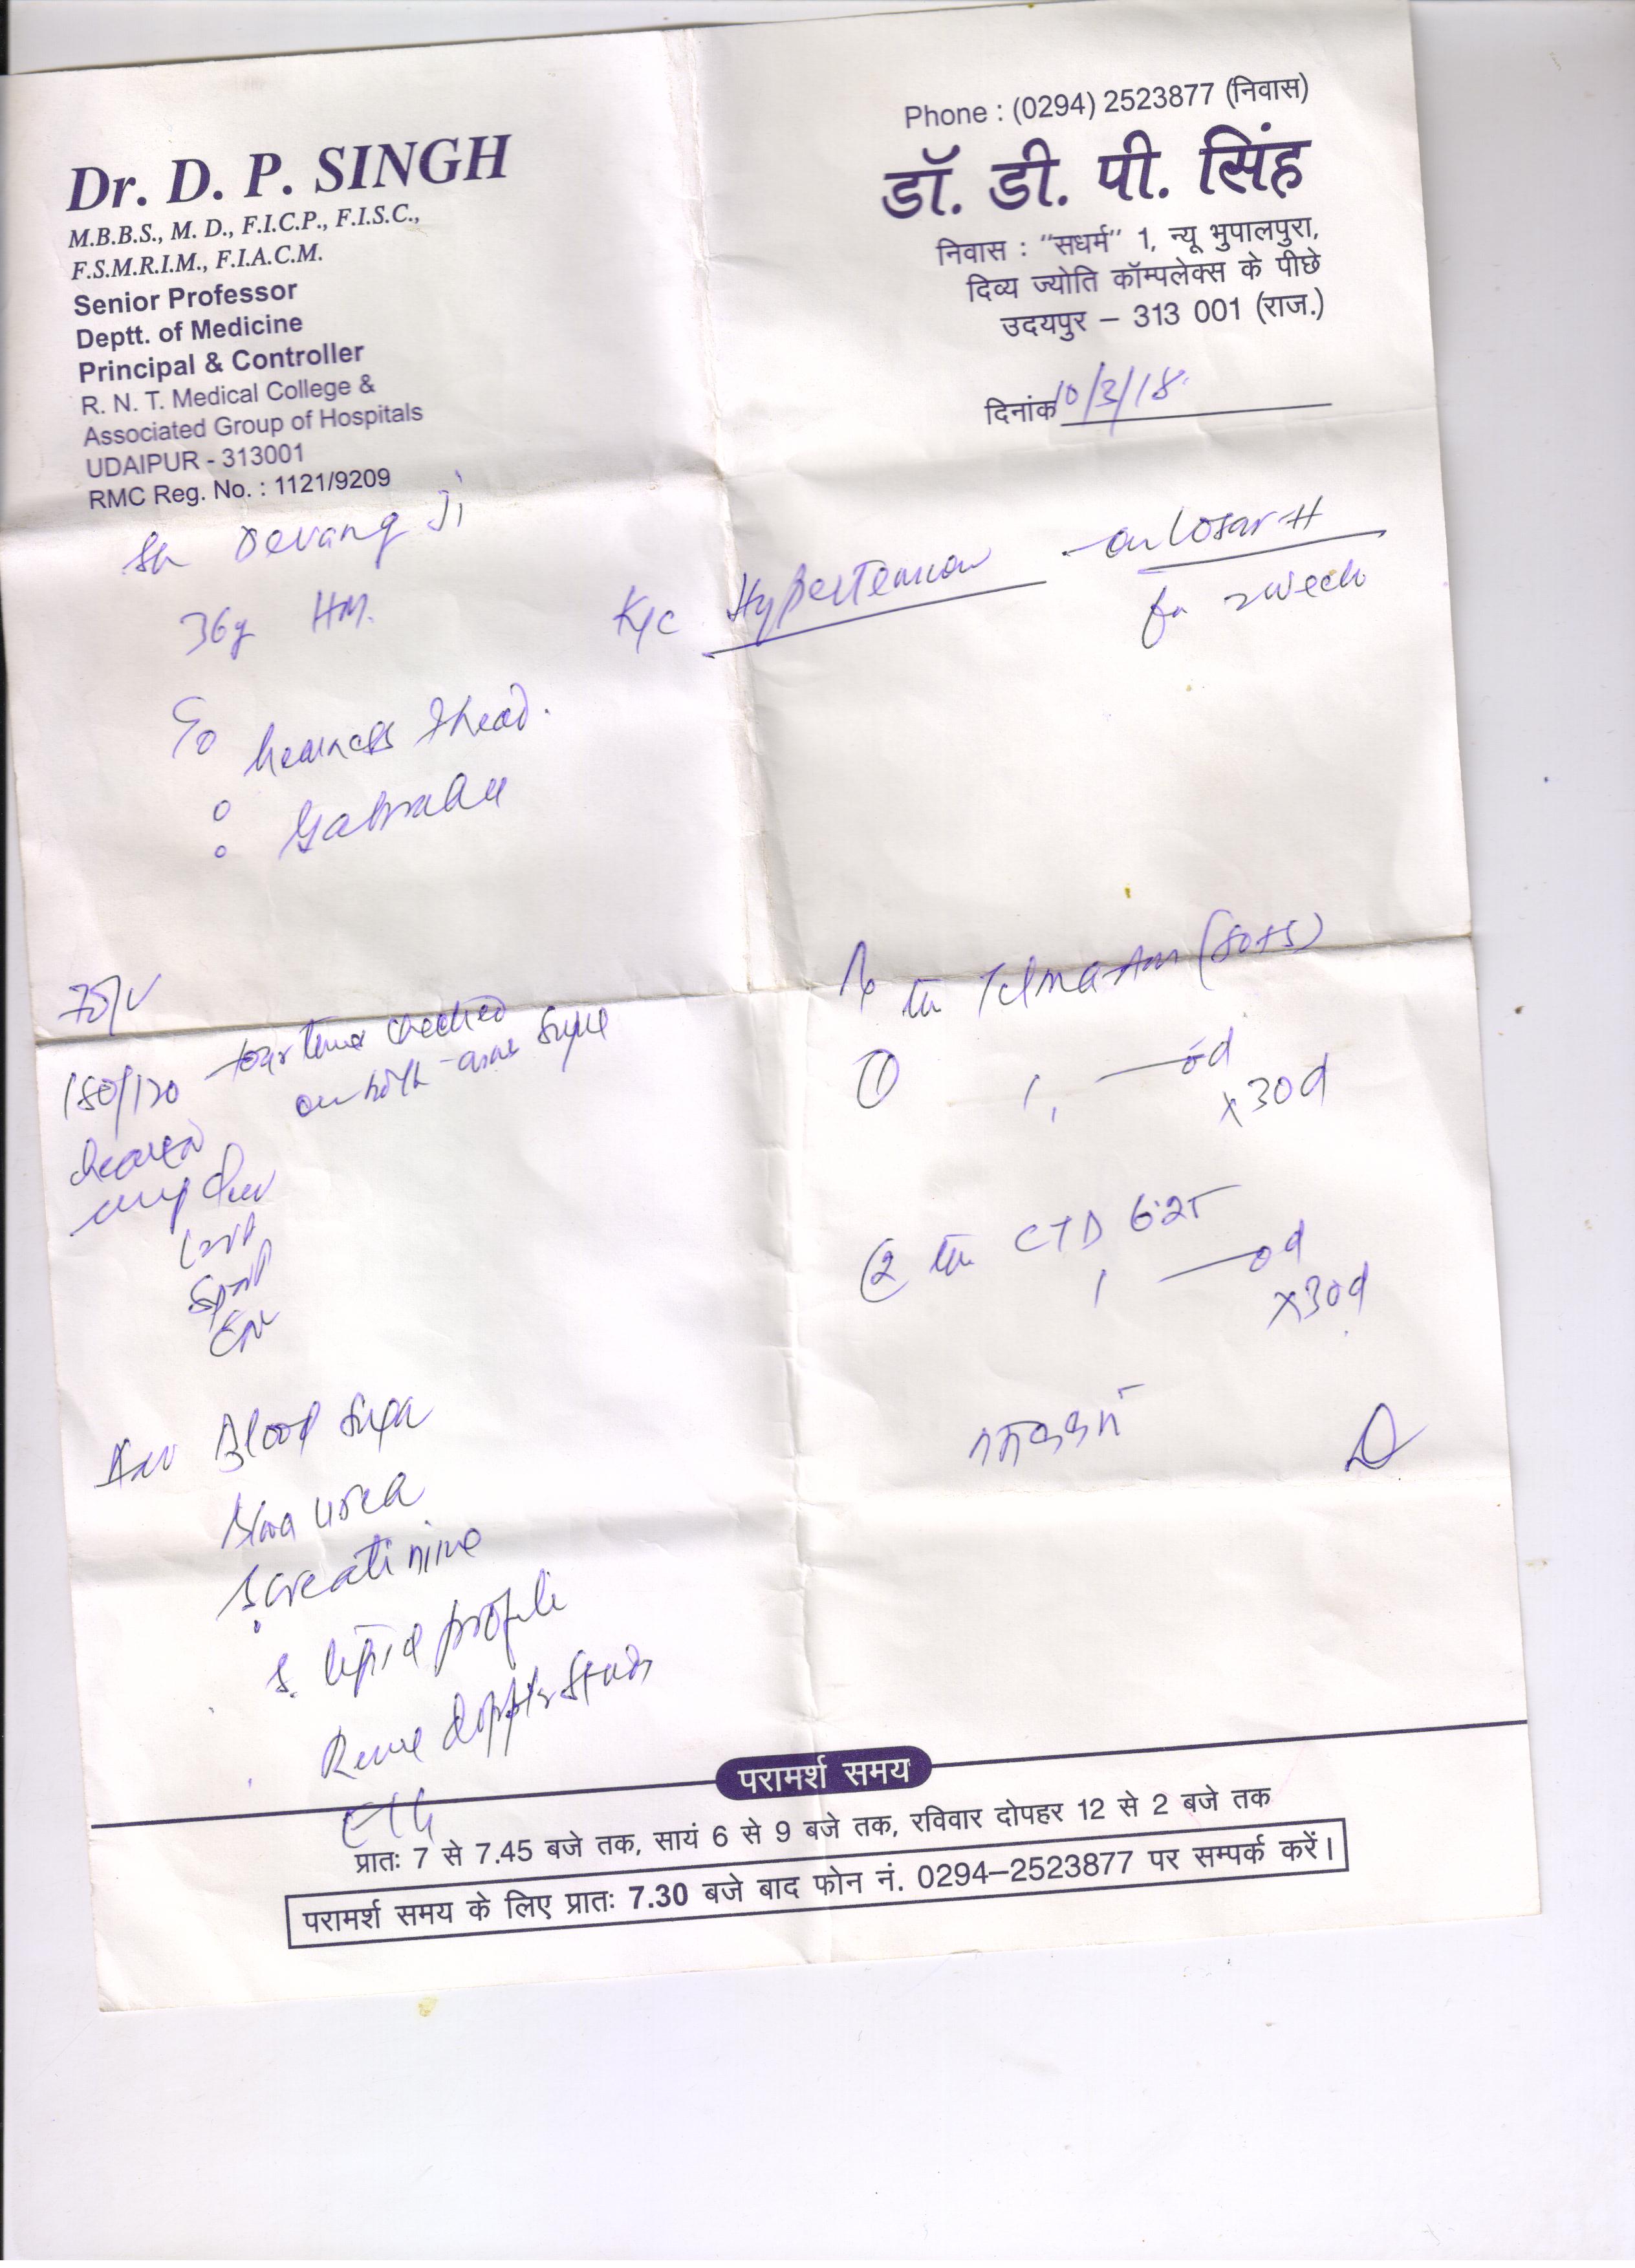 Dr. D. P. SINGH
M.B.B.S., M. D., F.I.C.P., F.I.S.C.,
F.S.M.R.I.M., F.I.A.C.M.
Senior Professor
Deptt. of Medicine
Principal & Controller
R. N. T. Medical College &
Associated Group of Hospitals
UDAIPUR - 313001
RMC Reg. No. : 1121/9209
Phone : (0294) 2523877 (निवास)
डॉ. डी. पी. सिंह
निवास : "सधर्म" 1, न्यू भुपालपुरा,
दिव्य ज्योति कॉम्पलेक्स के पीछे
उदयपुर – 313 001 (राज.)
दिनांक 10/3/18
Devang Ji
36y HM.
K/c Hypertension - on Losar-H
for 2 week
C/o heaviness of head.
Gabrahat
180/120 four times checked
on both arms supine
Blood Sugar
Blood urea
S. creatinine
S. lipid profile
Renal doppler study
Telma-Am (80+5)
① 1 — od
x30d
② CTD 6.25
1 — od
x30d
नमक कम
परामर्श समय
प्रातः 7 से 7.45 बजे तक, सायं 6 से 9 बजे तक, रविवार दोपहर 12 से 2 बजे तक
परामर्श समय के लिए प्रातः 7.30 बजे बाद फोन नं. 0294–2523877 पर सम्पर्क करें।